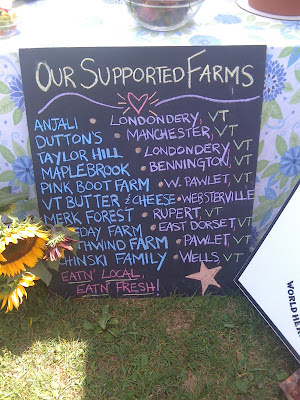 OUR SUPPORTED FARMS
ANJALI • LONDONDERY, VT
DUTTON'S • MANCHESTER, VT
TAYLOR HILL • LONDONDERY, VT
MAPLEBROOK • BENNINGTON, VT
PINK BOOT FARM • W. PAWLET, VT
VT BUTTER & CHEESE • WEBSTERVILLE
MERK FOREST • RUPERT, VT
DAY FARM • EAST DORSET, VT
WIND FARM • PAWLET, VT
FAMILY • WELLS, VT
EATN' LOCAL,
EATN' FRESH!
WORLD